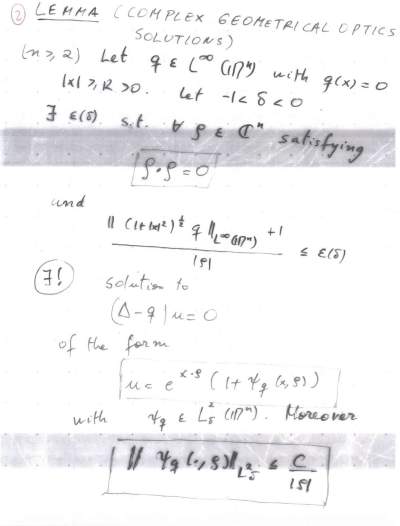 ② LEMMA (COMPLEX GEOMETRICAL OPTICS
SOLUTIONS)
(n ≥ 2) Let q ∈ L^∞(ℝ^n) with q(x) = 0
|x| ≥ R > 0. Let -1 < δ < 0
∃ ε(δ) s.t. ∀ ρ ∈ ℂ^n satisfying
ρ · ρ = 0
and
‖(1+|x|²)^½ q‖_{L^∞(ℝ^n)} + 1
/ |ρ| ≤ ε(δ)
∃! solution to
(Δ - q) u = 0
of the form
u = e^{x·ρ} (1 + Ψ_q (x, ρ))
with Ψ_q ∈ L²_δ (ℝ^n). Moreover
‖Ψ_q (·, ρ)‖_{L²_δ} ≤ C / |ρ|